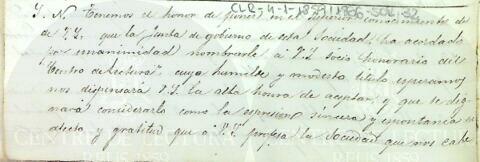 CLR-4-1-1859/1866-SOL-32
Y. N. Tenemos el honor de poner en el superior conocimiento de
de V.Y. que la junta de gobierno de esta Sociedad, ha acordado
por unanimidad nombrarle á V.Y. Socio honorario del
"Centro de lectura", cuyo humilde y modesto título esperamos
nos dispensará V.Y. la alta honra de aceptar, y que se dig-
nará considerarlo como la espresion sincera y espontánea de
afecto y gratitud que á V.Y. profesa la Sociedad que nos cabe
CENTRE DE LECTURA
REUS 1859